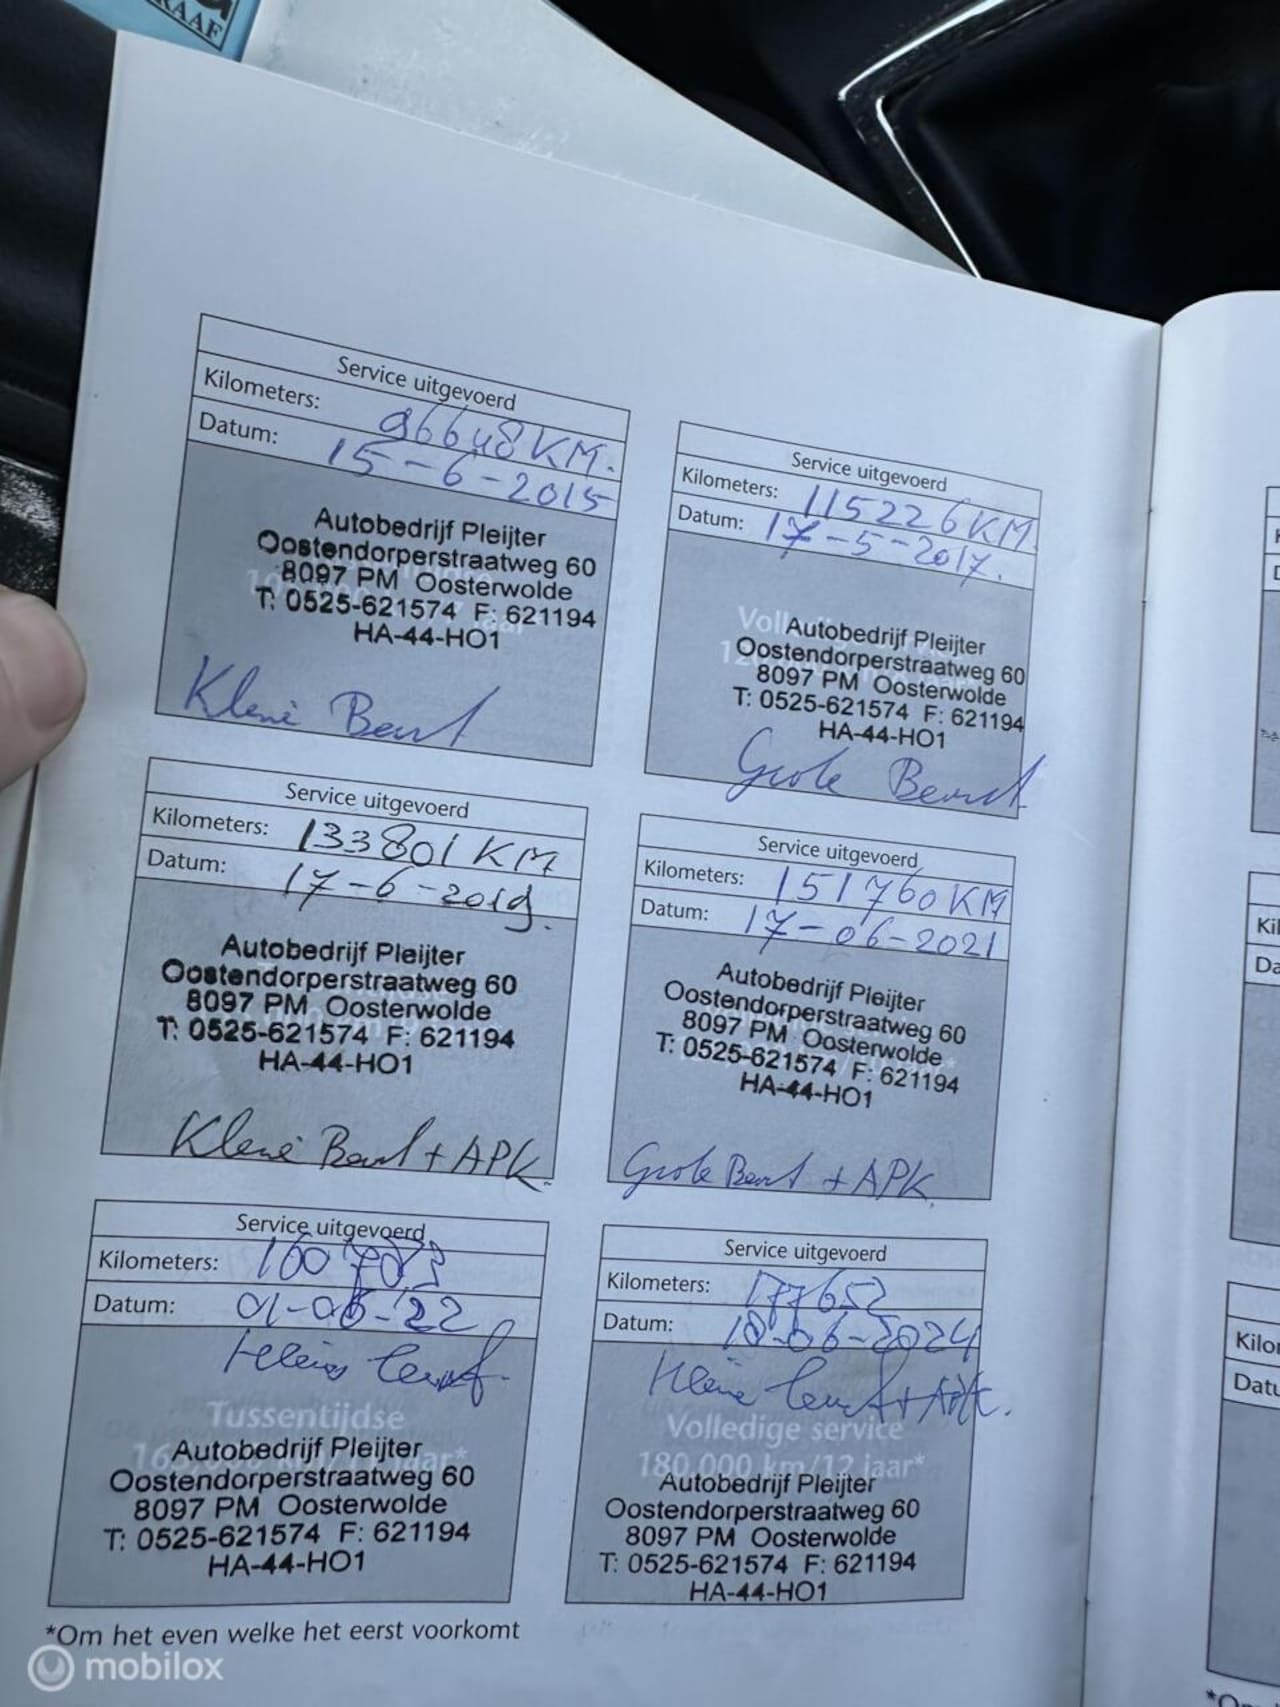 RAAF
Service uitgevoerd
Kilometers: 96648 KM.
Datum: 15-6-2015
Autobedrijf Pleijter
Oostendorperstraatweg 60
8097 PM Oosterwolde
T: 0525-621574 F: 621194
HA-44-HO1
Kleine Beurt
Service uitgevoerd
Kilometers: 115226 KM.
Datum: 17-5-2017.
Autobedrijf Pleijter
Oostendorperstraatweg 60
8097 PM Oosterwolde
T: 0525-621574 F: 621194
HA-44-HO1
Grote Beurt
Service uitgevoerd
Kilometers: 133801 KM
Datum: 17-6-2019.
Autobedrijf Pleijter
Oostendorperstraatweg 60
8097 PM Oosterwolde
T: 0525-621574 F: 621194
HA-44-HO1
Kleine Beurt + APK.
Service uitgevoerd
Kilometers: 151760 KM
Datum: 17-06-2021
Autobedrijf Pleijter
Oostendorperstraatweg 60
8097 PM Oosterwolde
T: 0525-621574 F: 621194
HA-44-HO1
Grote Beurt + APK
Service uitgevoerd
Kilometers: 160783
Datum: 01-06-'22
Kleine beurt
Tussentijdse
Autobedrijf Pleijter
Oostendorperstraatweg 60
8097 PM Oosterwolde
T: 0525-621574 F: 621194
HA-44-HO1
Service uitgevoerd
Kilometers: 177652
Datum: 18-06-2024
Kleine beurt + APK.
Volledige service
180.000 km/12 jaar*
Autobedrijf Pleijter
Oostendorperstraatweg 60
8097 PM Oosterwolde
T: 0525-621574 F: 621194
HA-44-HO1
*Om het even welke het eerst voorkomt
mobilox